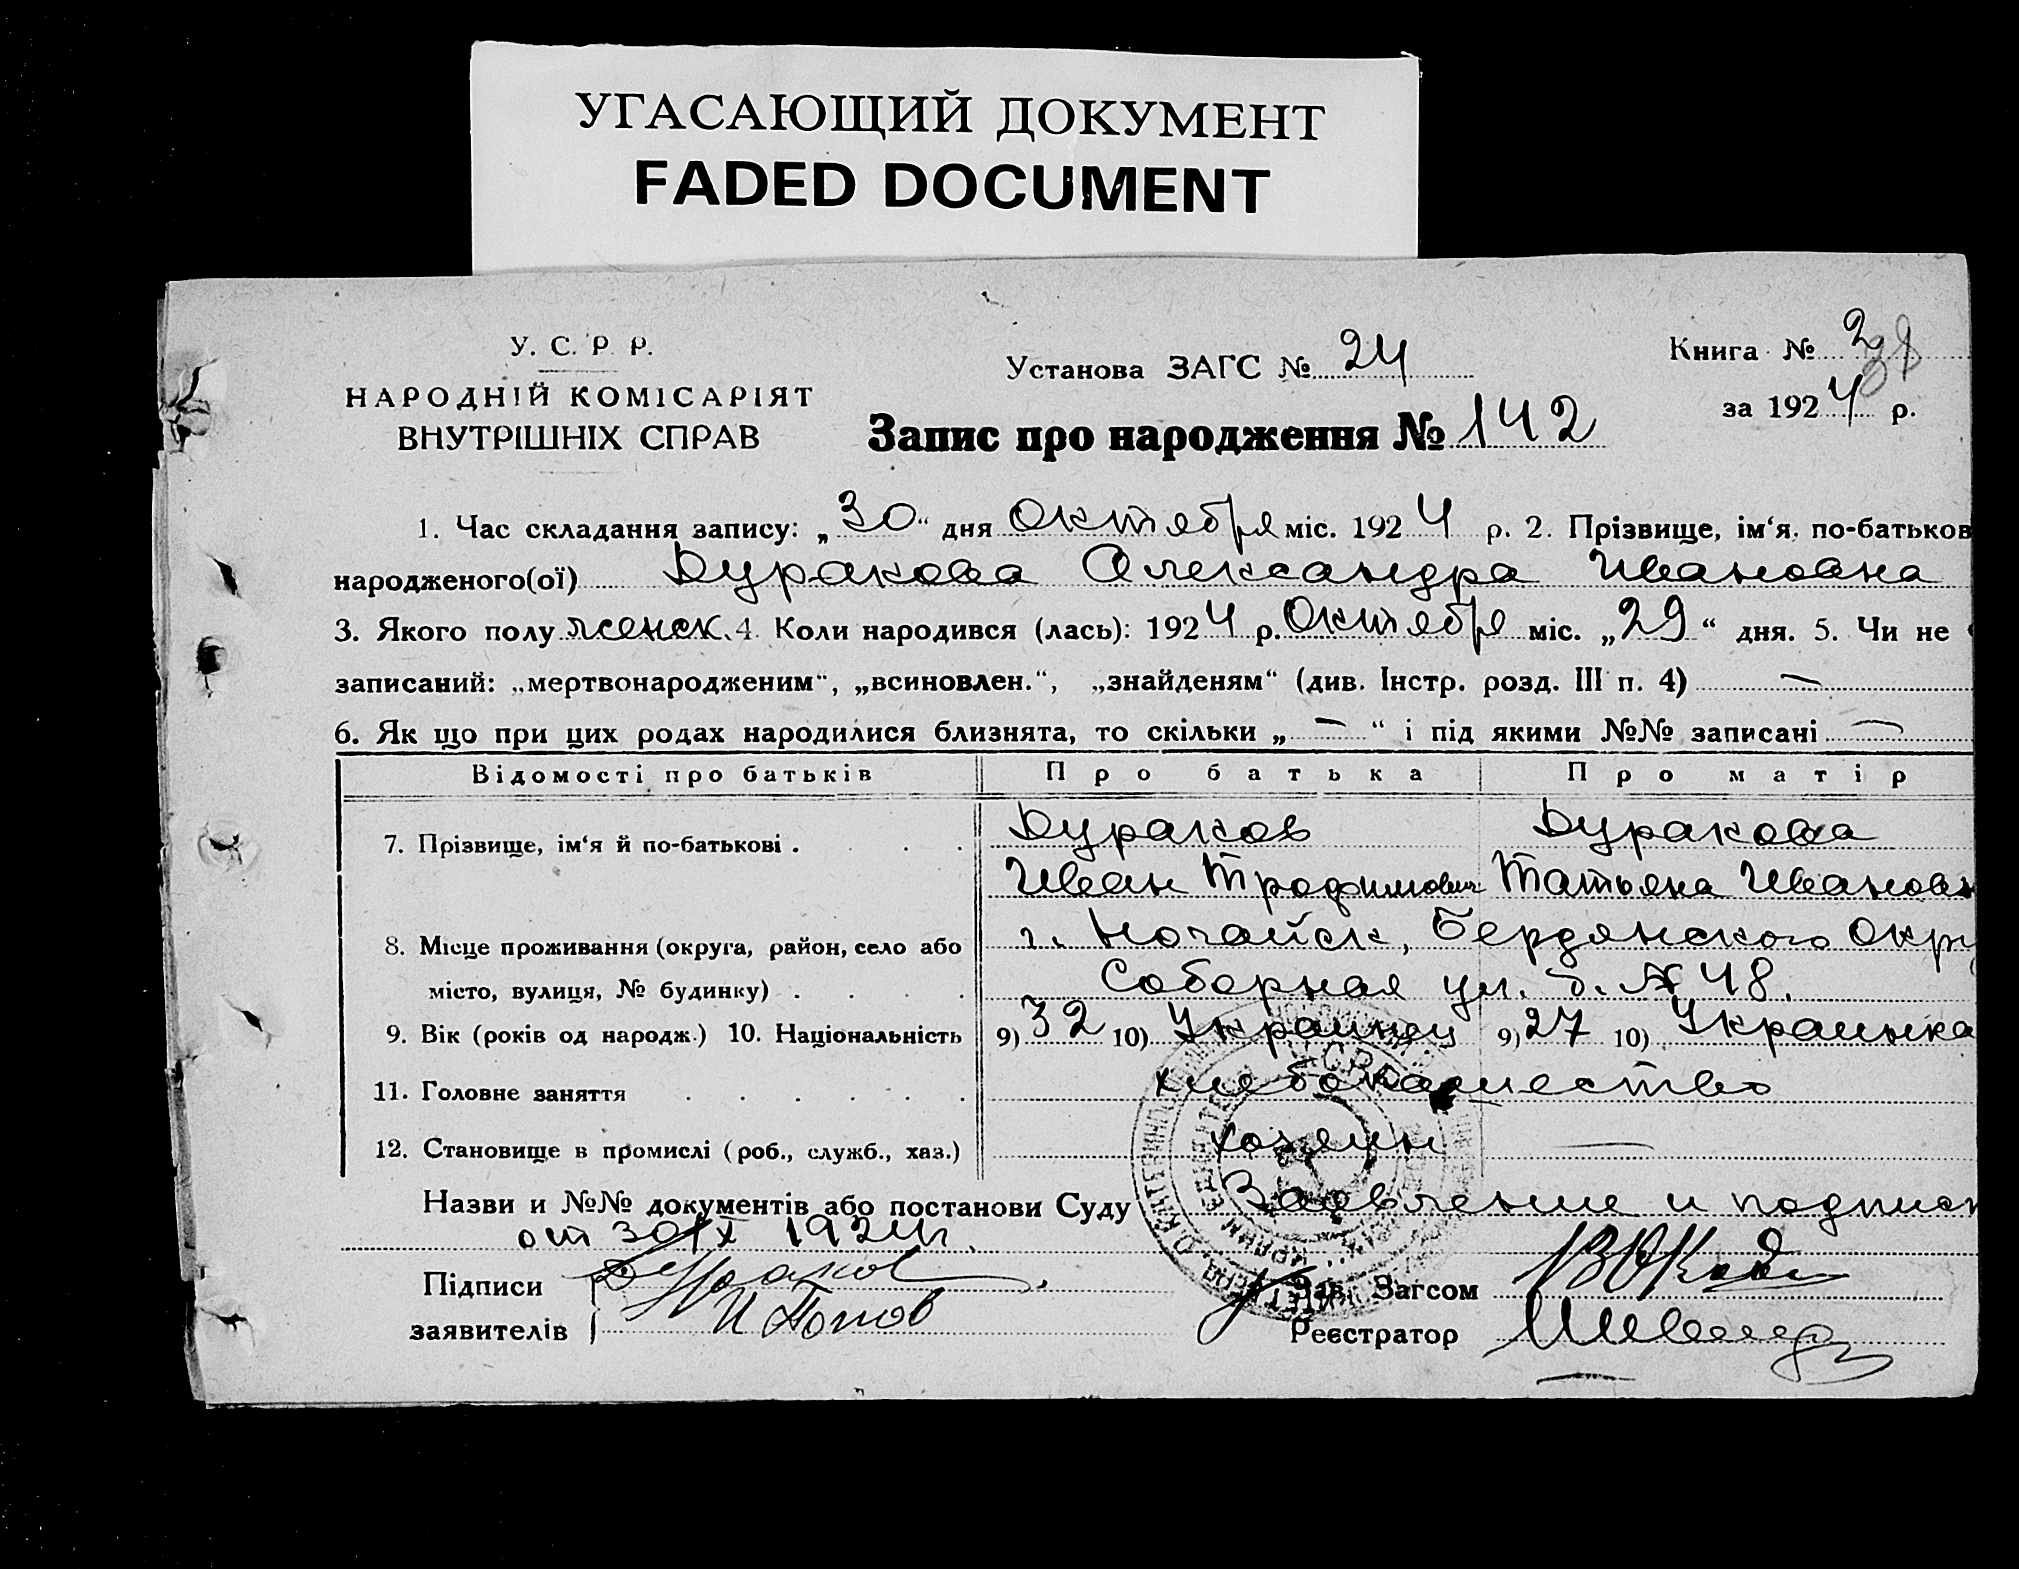 УГАСАЮЩИЙ ДОКУМЕНТ
FADED DOCUMENT
У. С. Р. Р.
НАРОДНІЙ КОМІСАРІЯТ
ВНУТРІШНІХ СПРАВ
Установа ЗАГС № 24
Книга № 2
38
за 1924 р.
Запис про народження № 142
1. Час складання запису: „30“ дня Октября міс. 1924 р. 2. Прізвище, ім‘я, по-батьков
народженого(ої) Дуракова Александра Ивановна
3. Якого полу женск. 4. Коли народився (лась): 1924 р. Октября міс. „29“ дня. 5. Чи не
записаний: „мертвонародженим“, „всиновлен.“, „знайденям“ (див. Інстр. розд. III п. 4) —
6. Як що при цих родах народилися близнята, то скільки „—“ і під якими №№ записані —
Відомості про батьків Про батька Про матір
7. Прізвище, ім‘я й по-батькові . Дураков Дуракова
Иван Трофимович Татьяна Ивановн
8. Місце проживання (округа, район, село або г. Ногайск, Бердянского Окру
місто, вулиця, № будинку) . Соборная ул. д. № 48.
9. Вік (років од народж.) 10. Національність 9) 32 10) Украинец 9) 27 10) Украинка
11. Головне заняття хлебопашество
12. Становище в промислі (роб., служб., хаз.) хозяин —
Назви и №№ документів або постанови Суду Заявление и подписк
от 30/X 1924 г.
Підписи Дураков
заявителів И Попов
Зав. Загсом
Реєстратор